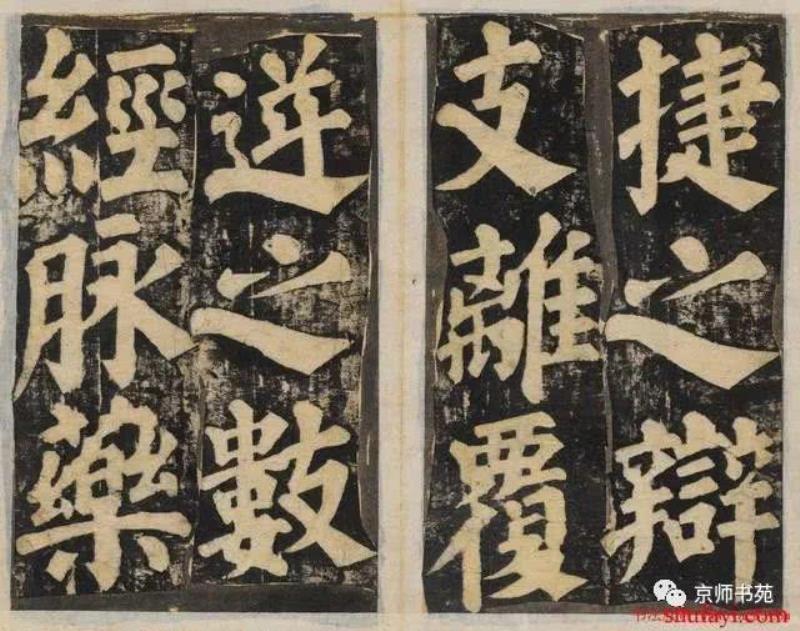 捷之辯
支離覆
逆之數
經脉藥
京师书苑
shufayi.com